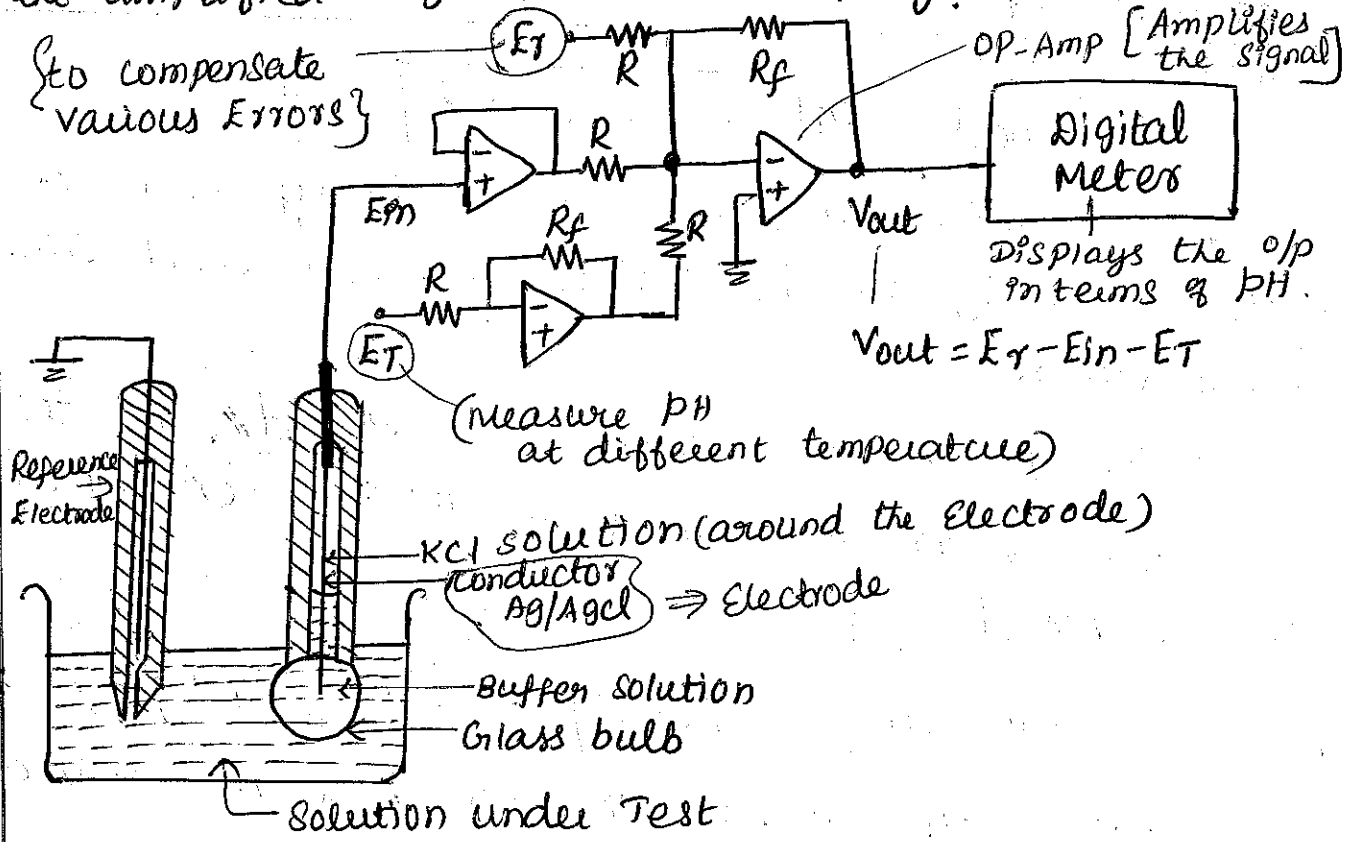 {to compensate
various Errors}
Er
R
Rf
OP-Amp [Amplifies
the signal]
Digital
Meter
R
-
+
-
+
Ein
Vout
Rf
R
R
-
+
Displays the o/p
in terms of pH.
ET
Vout = Er-Ein-ET
(Measure pH
at different temperature)
Reference
Electrode
KCl solution (around the Electrode)
Conductor
Ag/Agcl ⇒ Electrode
Buffer solution
Glass bulb
Solution under Test